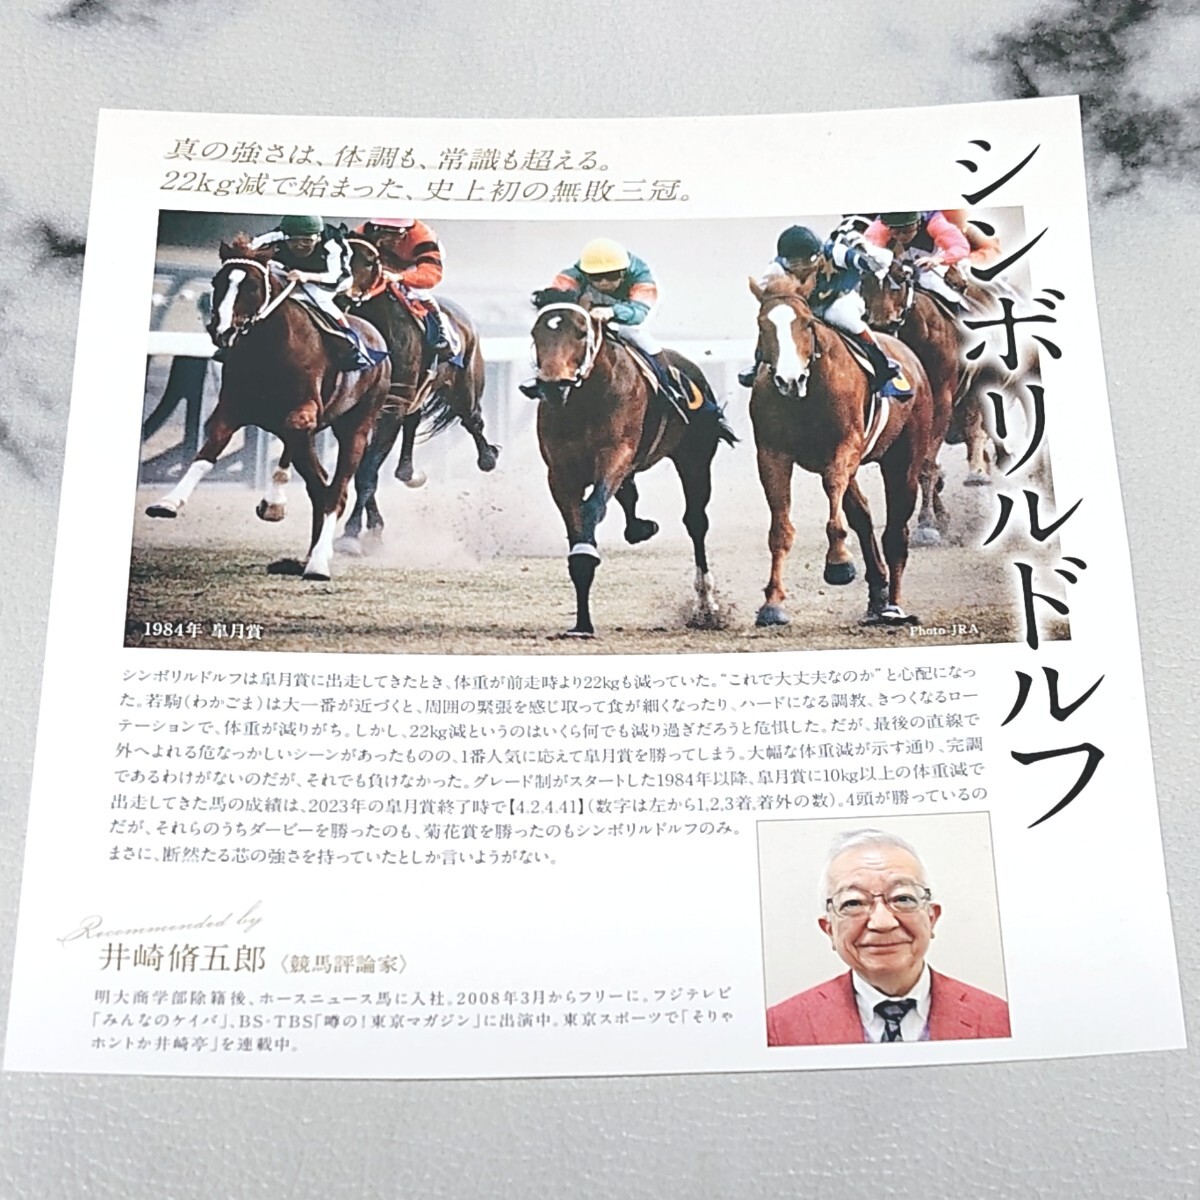 シンボリルドルフ
真の強さは、体調も、常識も超える。
22kg減で始まった、史上初の無敗三冠。
1984年 皐月賞
Photo JRA
シンボリルドルフは皐月賞に出走してきたとき、体重が前走時より22kgも減っていた。“これで大丈夫なのか”と心配になっ
た。若駒(わかごま)は大一番が近づくと、周囲の緊張を感じ取って食が細くなったり、ハードになる調教、きつくなるロー
テーションで、体重が減りがち。しかし、22kg減というのはいくら何でも減り過ぎだろうと危惧した。だが、最後の直線で
外へよれる危なっかしいシーンがあったものの、1番人気に応えて皐月賞を勝ってしまう。大幅な体重減が示す通り、完調
であるわけがないのだが、それでも負けなかった。グレード制がスタートした1984年以降、皐月賞に10kg以上の体重減で
出走してきた馬の成績は、2023年の皐月賞終了時で【4.2.4.41】(数字は左から1,2,3着,着外の数)。4頭が勝っているの
だが、それらのうちダービーを勝ったのも、菊花賞を勝ったのもシンボリルドルフのみ。
まさに、断然たる芯の強さを持っていたとしか言いようがない。
Recommended by
井崎脩五郎〈競馬評論家〉
明大商学部除籍後、ホースニュース馬に入社。2008年3月からフリーに。フジテレビ
「みんなのケイバ」、BS-TBS「噂の!東京マガジン」に出演中。東京スポーツで「そりゃ
ホントか井崎亭」を連載中。